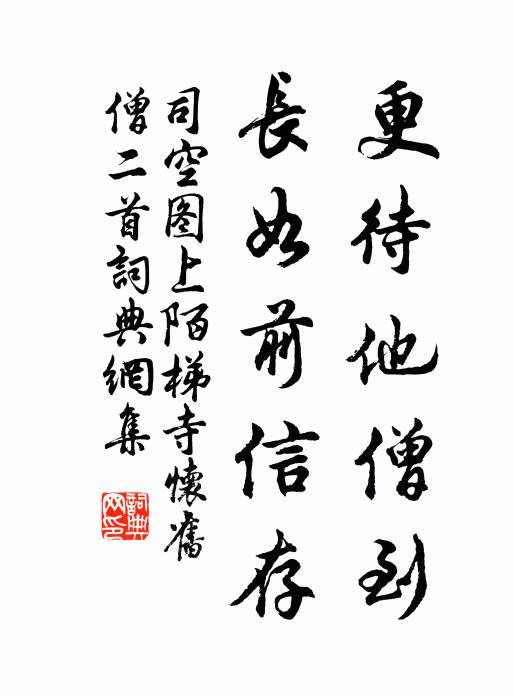 更待他僧到
長如前信存
司空图上陌梯寺懷舊
僧二首詞典網集
詞典网印